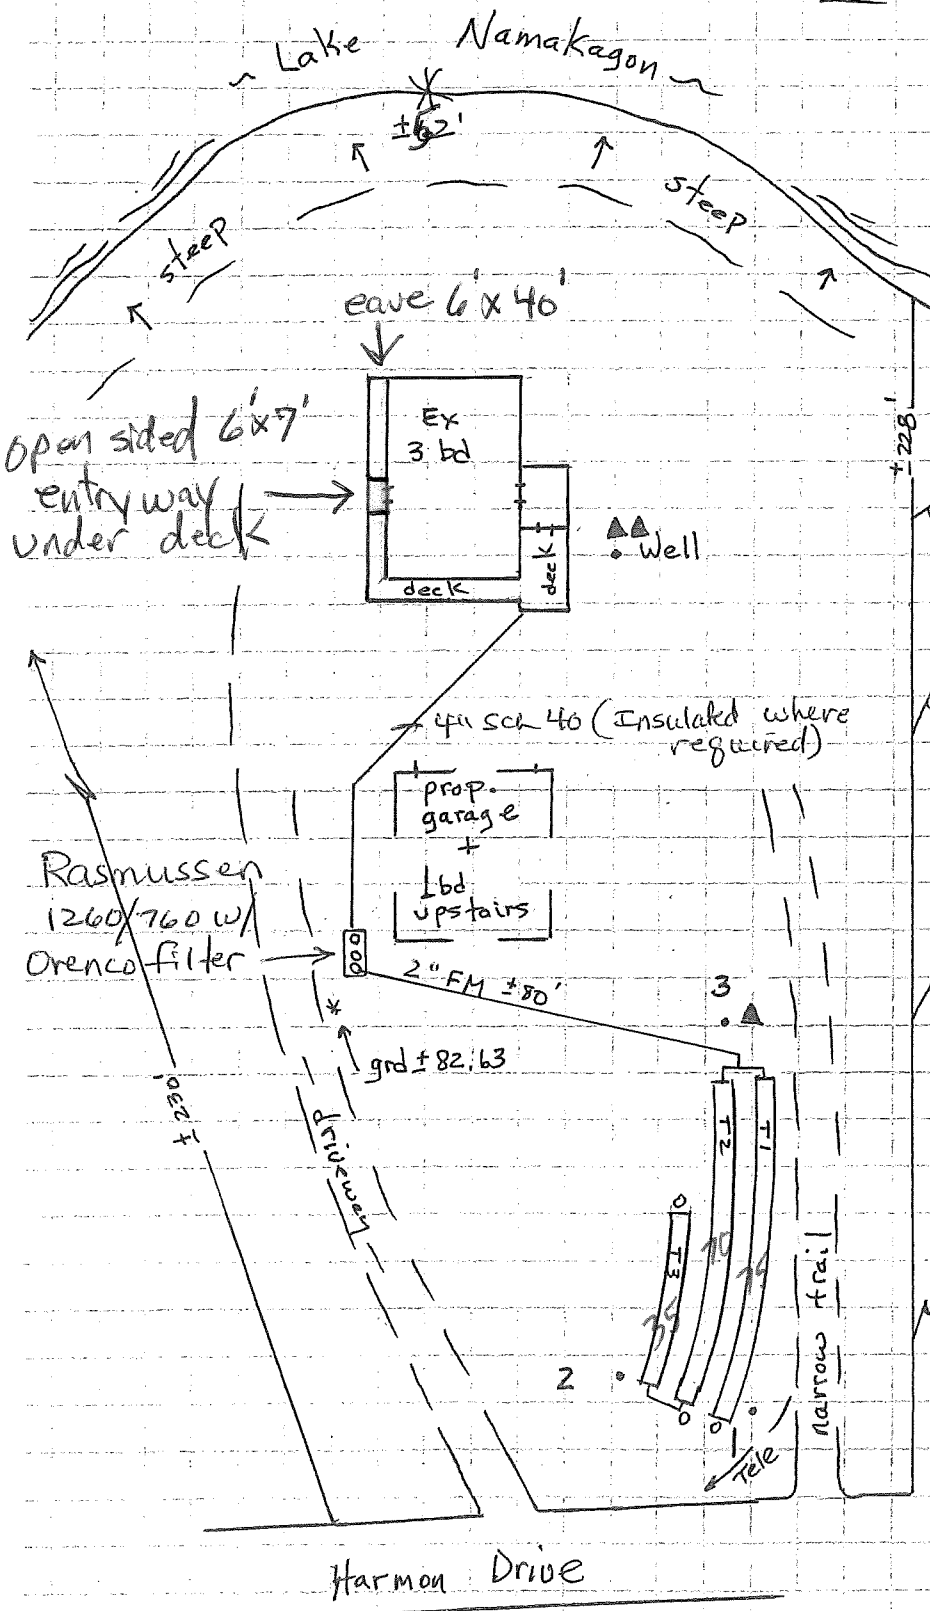 ~ Lake Namakagon ~
steep
steep
eave 6'x40'
open sided 6'x7'
entryway
under deck
Ex
3 bd
deck
deck
Well
± 228'
4" Sch 40 (Insulated where
required)
prop.
garage
+
1bd
upstairs
Rasmussen
1260/760 w/
Orenco filter
2" FM ±80'
3
grd ± 82.63
± 230'
driveway
T2
T1
T3
70
75
35
2
narrow trail
Tele
Harmon Drive